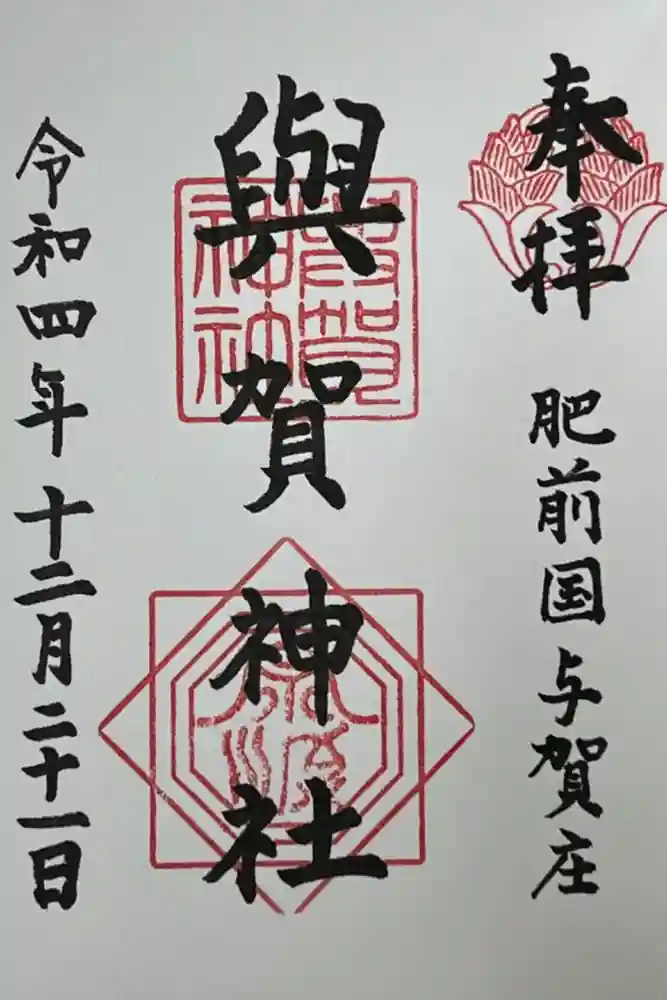 奉拝
肥前国与賀庄
與賀神社
與賀
神社
令和四年十二月二十一日